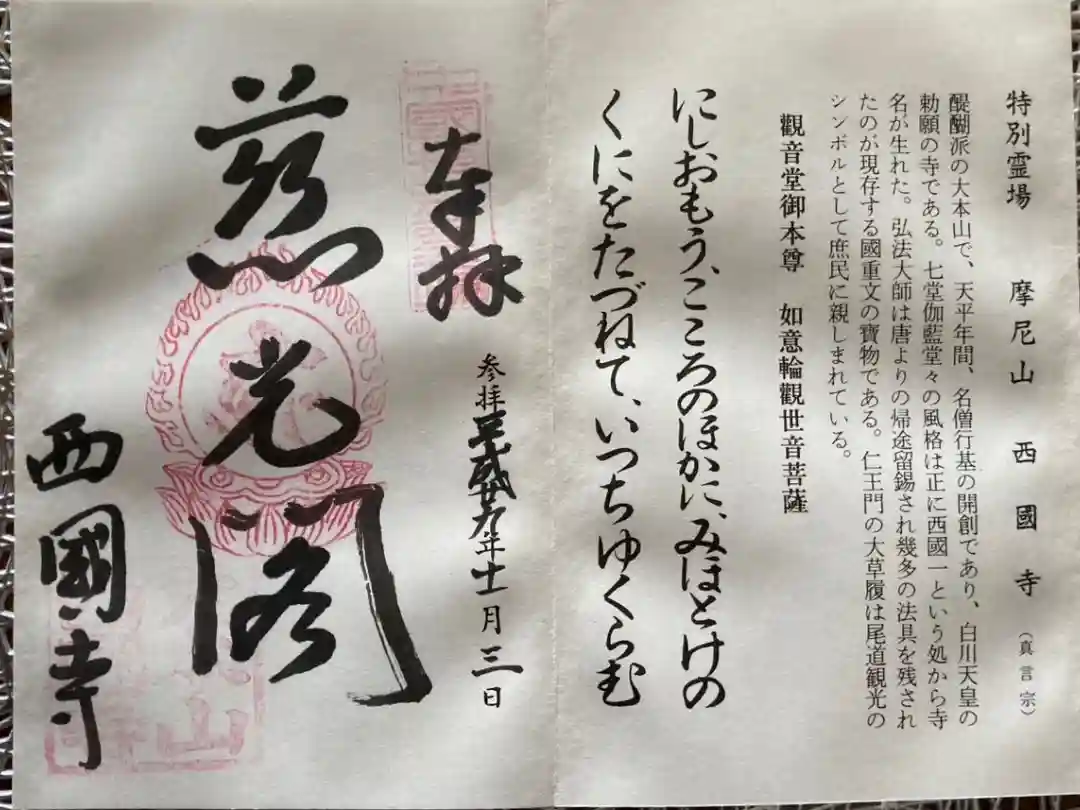 特別霊場　摩尼山　西國寺（真言宗）
醍醐派の大本山で、天平年間、名僧行基の開創であり、白川天皇の
勅願の寺である。七堂伽藍堂々の風格は正に西國一という処から寺
名が生れた。弘法大師は唐よりの帰途留錫され幾多の法具を残され
たのが現存する國重文の寶物である。仁王門の大草履は尾道観光の
シンボルとして庶民に親しまれている。
觀音堂御本尊　如意輪觀世音菩薩
にしおもう、こころのほかに、みほとけの
くにをたづねて、いつちゆくらむ
奉拝
参拝 平成廿九年十一月三日
慈光閣
西國寺